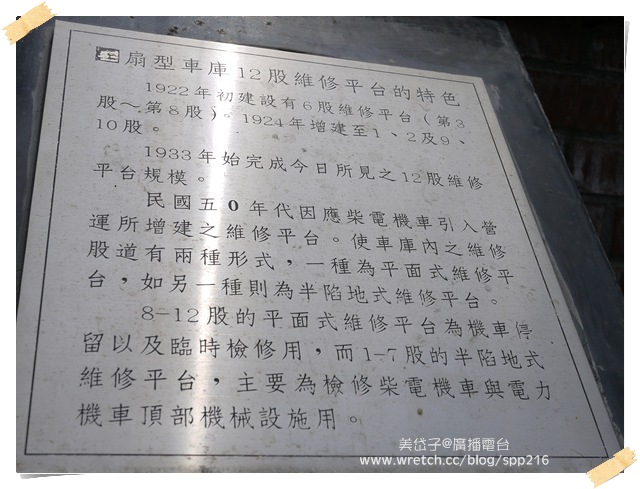 扇型車庫12股維修平台的特色
1922年初建設有6股維修平台(第3
股～第8股)。1924年增建至1、2及9、
10股。
1933年始完成今日所見之12股維修
平台規模。
民國五0年代因應柴電機車引入營
運所增建之維修平台。使車庫內之維修
股道有兩種形式，一種為平面式維修平
台，如另一種則為半陷地式維修平台。
8-12股的平面式維修平台為機車停
留以及臨時檢修用，而1-7股的半陷地式
維修平台，主要為檢修柴電機車與電力
機車頂部機械設施用。
美岱子@廣播電台
www.wretch.cc/blog/spp216